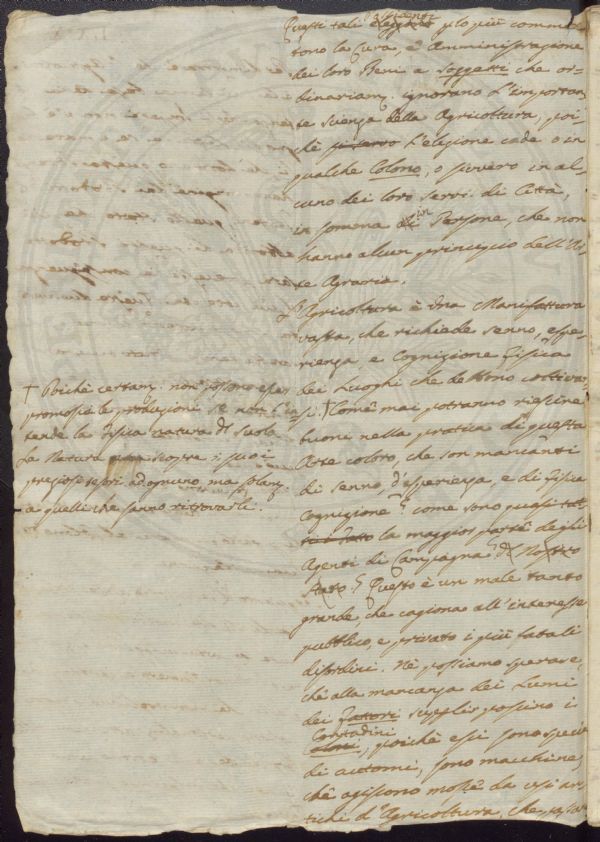 Questi tali possidenti p lo più commet
tono la Cura, e Amministrazione
dei loro Beni a soggetti che or-
dinariam. ignorano l'importan
te scienza della Agricoltura, poi
chè l'elezione cade o in
qualche Colono, o sivvero in al-
cuno dei loro servi di Città,
in somma in Persone, che non
hanno alcun principio dell'Ar
te Agraria.
L'Agricoltura è una Manifattura
vasta, che richiede senno, espe-
rienza, e Cognizione Fisica
dei Luoghi che debbono coltivar
si. † Come mai potranno riescire
buone nella pratica di questa
Arte coloro, che son mancanti
di senno, d'esperienza, e di Fisica
Cognizione? come sono quasi tut-
ti in fatto la maggior parte degli
Agenti di Campagna? del Nostro
Stato? Questo è un male tanto
grande, che cagiona all'interesse
pubblico, e privato i più fatali
disordini. Nè possiamo sperare,
chè alla mancanza dei Lumi
dei Fattori supplir possino i
Contadini
Coloni, poichè essi sono specie
di automi, sono macchine,
chè agiscono mosse da
d'Agricoltura, che
† Poichè certam. non possono esser
promosse le produzioni se non s'in-
tende la fisica natura del suolo
La Natura scopre i suoi
preziosi tesori ad ognuno, ma solam.
a quelli che sanno ritrovarli.